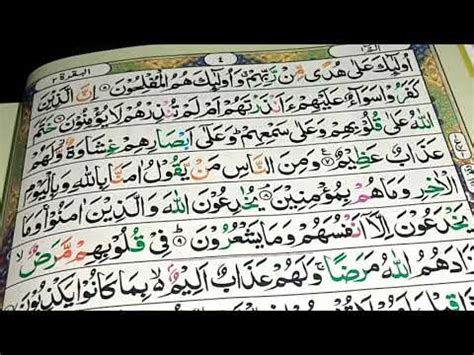 البقرة ٢
٤
الٓمّٓ ١
اُولٰٓئِكَ عَلٰى هُدًى مِّنْ رَّبِّهِمْ وَاُولٰٓئِكَ هُمُ الْمُفْلِحُوْنَ ۝ اِنَّ الَّذِيْنَ
كَفَرُوْا سَوَآءٌ عَلَيْهِمْ ءَاَنْذَرْتَهُمْ اَمْ لَمْ تُنْذِرْهُمْ لَا يُؤْمِنُوْنَ ۝ خَتَمَ
اللّٰهُ عَلٰى قُلُوْبِهِمْ وَعَلٰى سَمْعِهِمْ ؕ وَعَلٰٓى اَبْصَارِهِمْ غِشَاوَةٌ ؗ وَّلَهُمْ
عَذَابٌ عَظِيْمٌ ۝٧ وَمِنَ النَّاسِ مَنْ يَّقُوْلُ اٰمَنَّا بِاللّٰهِ وَبِالْيَوْمِ
الْاٰخِرِ وَمَا هُمْ بِمُؤْمِنِيْنَ ۝ يُخٰدِعُوْنَ اللّٰهَ وَالَّذِيْنَ اٰمَنُوْا ۚ وَمَا
يَخْدَعُوْنَ اِلَّآ اَنْفُسَهُمْ وَمَا يَشْعُرُوْنَ ۝٩ فِيْ قُلُوْبِهِمْ مَّرَضٌ ۙ
فَزَادَهُمُ اللّٰهُ مَرَضًا ۚ وَلَهُمْ عَذَابٌ اَلِيْمٌ ۢ ۙ بِمَا كَانُوْا يَكْذِبُوْنَ